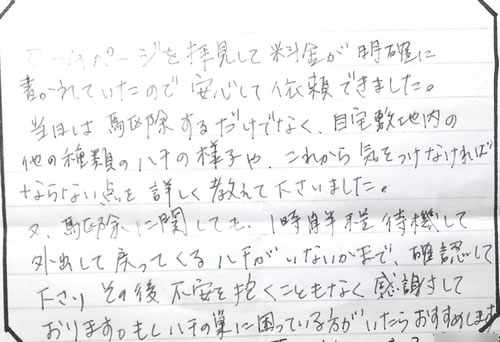 ホームページを拝見して料金が明確に
書かれていたので安心して依頼できました。
当日は駆除するだけでなく、自宅敷地内の
他の種類のハチの様子や、これから気をつけなければ
ならない点を詳しく教えて下さいました。
又、駆除に関しても、1時間半程待機して
外出して戻ってくるハチがいないかまで、確認して
下さり その後不安を抱くこともなく感謝して
おります。もしハチの巣に困っている方がいたらおすすめします